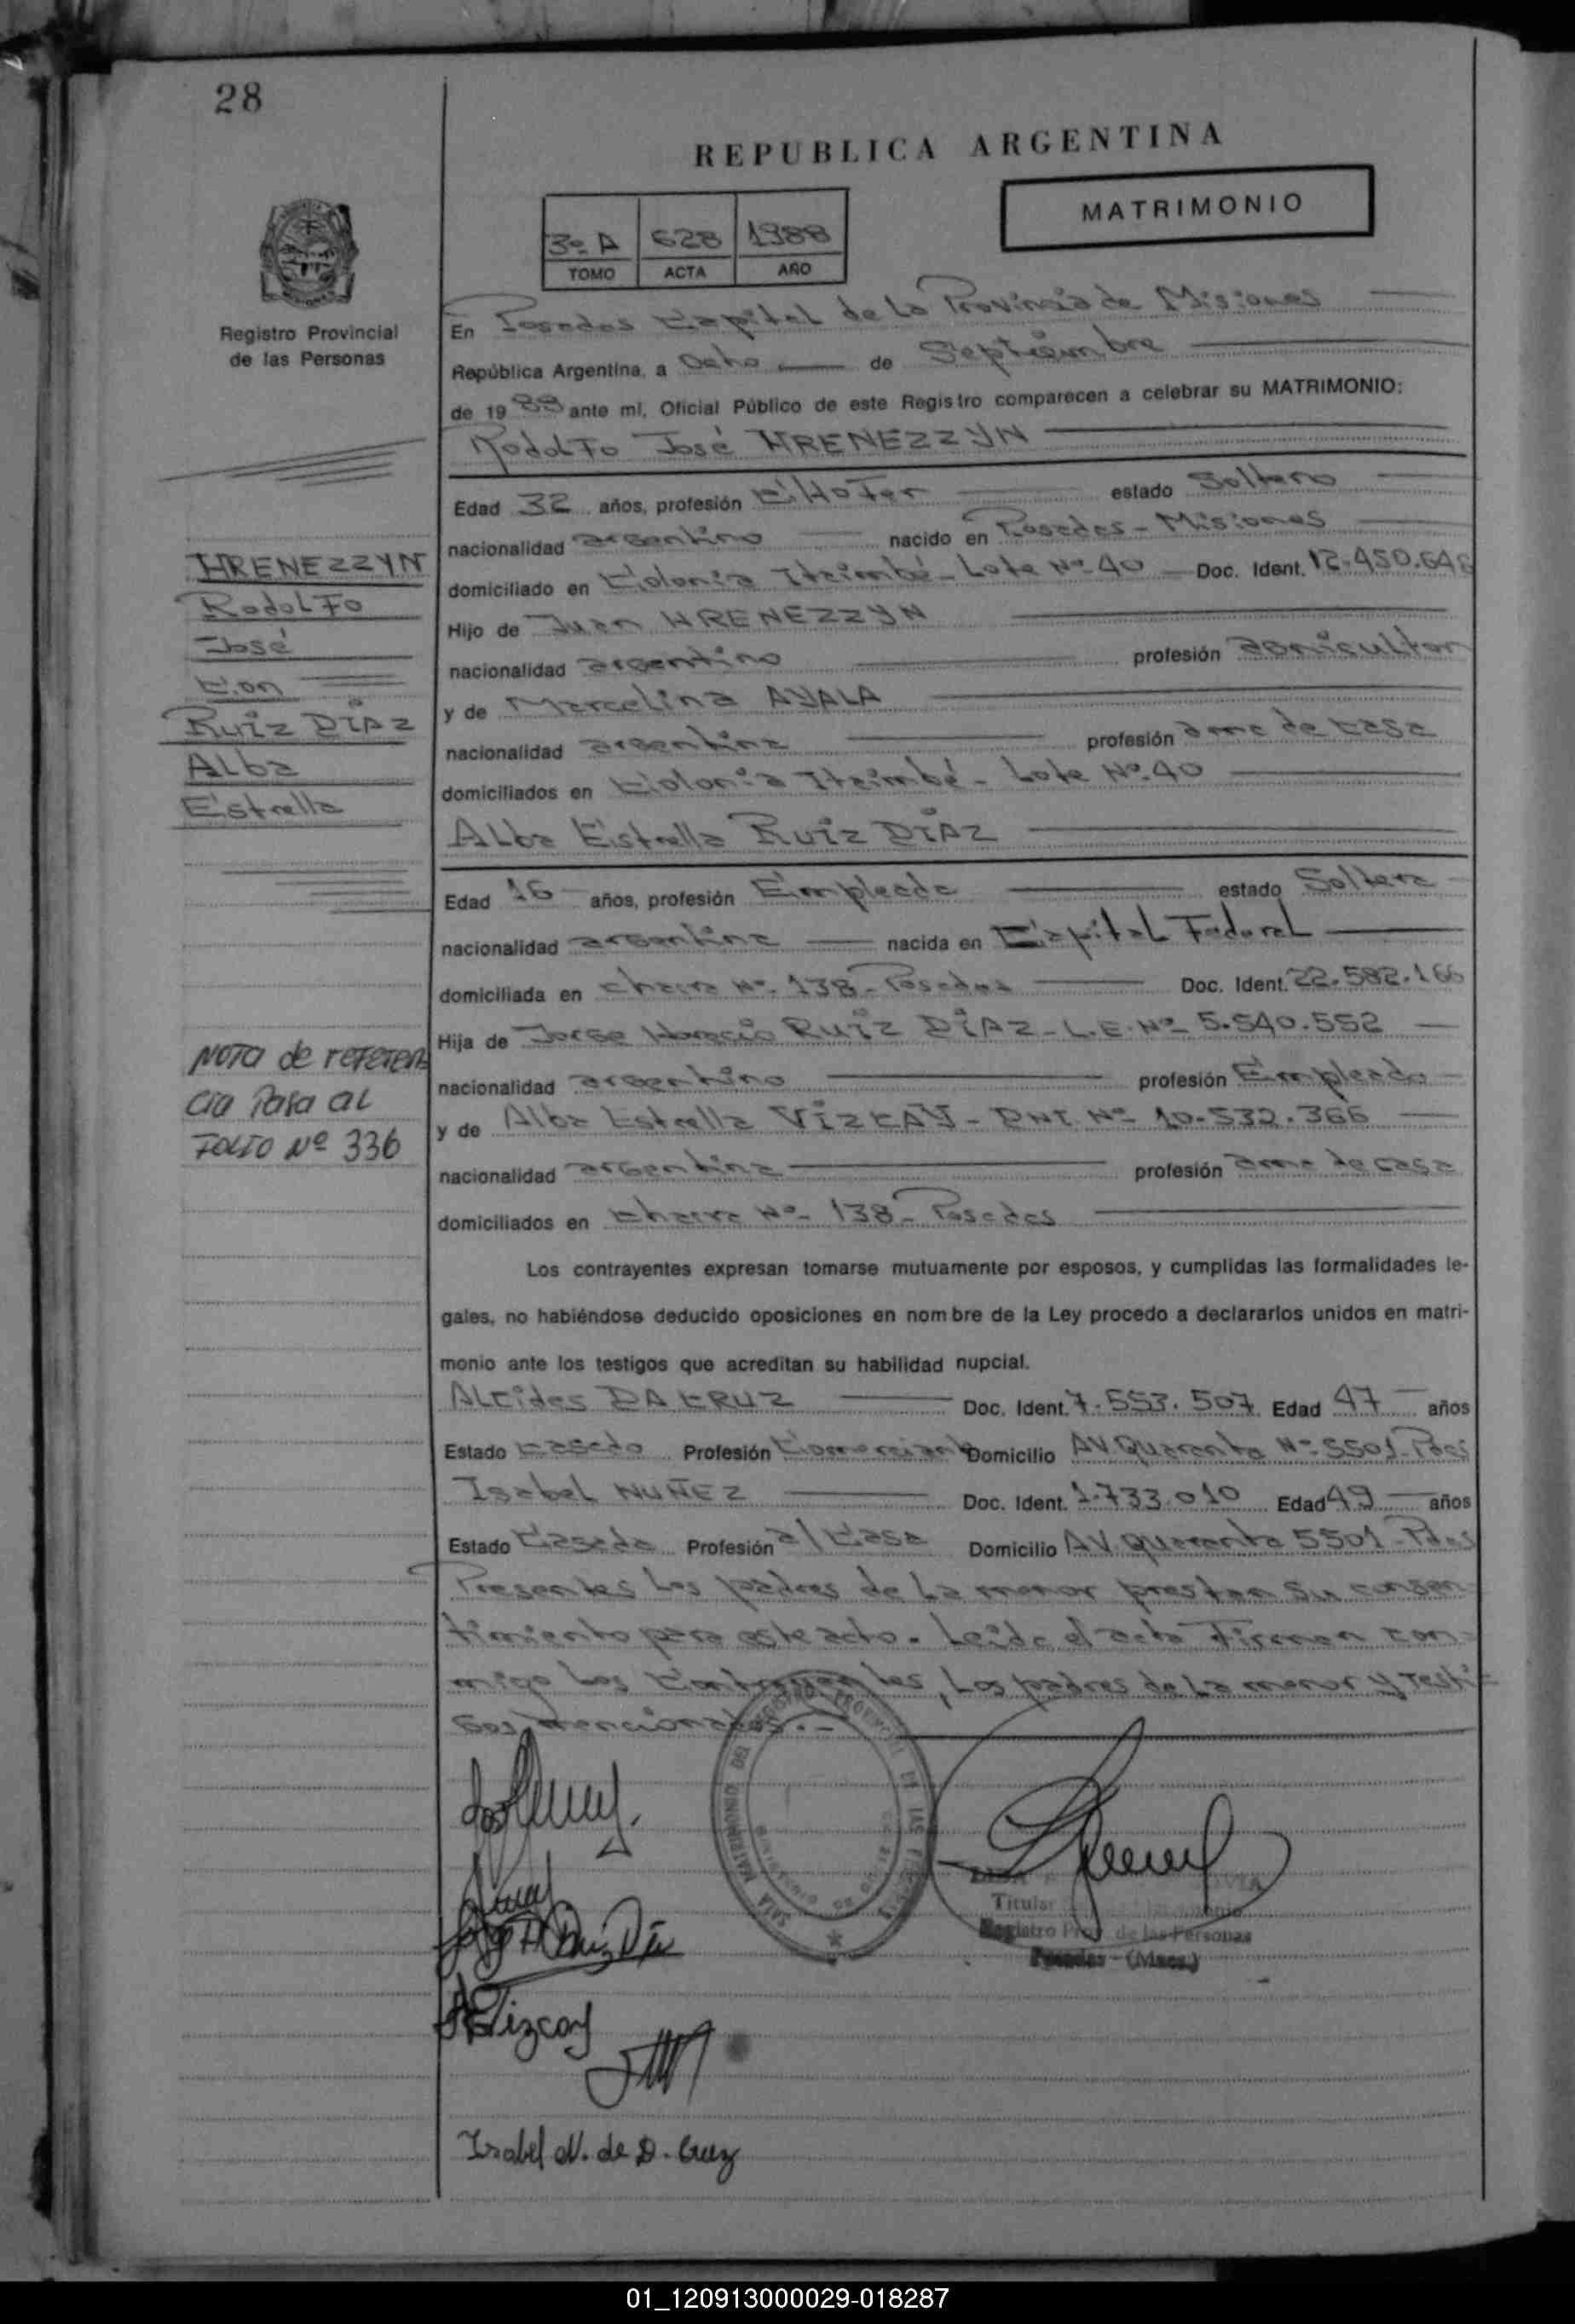 28
REPUBLICA ARGENTINA
MATRIMONIO
3º A 628 1988
TOMO ACTA AÑO
Registro Provincial
de las Personas
En Posadas Capital de la Provincia de Misiones
República Argentina, a Ocho de Septiembre
de 1988 ante mí, Oficial Público de este Registro comparecen a celebrar su MATRIMONIO:
Rodolfo José HRENEZZYN
Edad 32 años, profesión Chofer estado Soltero
nacionalidad argentino nacido en Posadas - Misiones
domiciliado en Colonia Itaimbé - Lote Nº 40 Doc. Ident. 12.450.646
Hijo de Juan HRENEZZYN
nacionalidad argentino profesión agricultor
y de Marcelina AYALA
nacionalidad argentina profesión ama de casa
domiciliados en Colonia Itaimbé - Lote Nº 40
Alba Estrella Ruiz DIAZ
Edad 16 años, profesión Empleada estado Soltera
nacionalidad argentina nacida en Capital Federal
domiciliada en chacra Nº 138 - Posadas Doc. Ident. 22.582.166
Hija de Jorge Horacio RUIZ DIAZ - L.E. Nº 5.540.552
nacionalidad argentino profesión Empleado
y de Alba Estrella VIZCAY - DNI. Nº 10.532.366
nacionalidad argentina profesión ama de casa
domiciliados en chacra Nº 138 - Posadas
HRENEZZYN
Rodolfo
José
Con
Ruiz DIAZ
Alba
Estrella
NOTA de referen
cia Pasa al
FOLIO Nº 336
Los contrayentes expresan tomarse mutuamente por esposos, y cumplidas las formalidades le-
gales, no habiéndose deducido oposiciones en nombre de la Ley procedo a declararlos unidos en matri-
monio ante los testigos que acreditan su habilidad nupcial.
Alcides DA CRUZ Doc. Ident. 7.553.507 Edad 47 años
Estado Casado Profesión Comerciante Domicilio AV. Quaranta Nº 5501 - Pdas
Isabel NUÑEZ Doc. Ident. 1.733.010 Edad 49 años
Estado Casada Profesión a/ Casa Domicilio AV. Quaranta 5501 - Pdas
Presentes los padres de la menor prestan su consen
timiento para este acto. Leida el acta Firman con=
migo los Contrayentes, los padres de la menor y testi=
gos mencionados. -
Jorge H Ruiz Díaz
AEVizcay
Titular
Registro Prov. de las Personas
Posadas - (Mnes.)
Isabel N. de D. Cruz
01_120913000029-018287